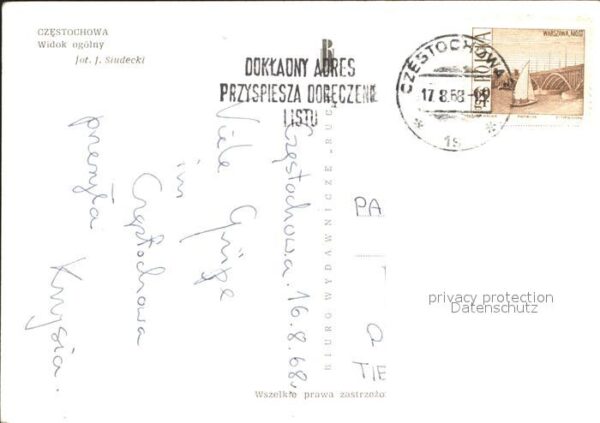 CZĘSTOCHOWA
Widok ogólny
fot. J. Siudecki
DOKŁADNY ADRES
PRZYSPIESZA DORĘCZENIE
LISTU
CZĘSTOCHOWA
17.8.68
WARSZAWA, MOST
POLSKA
Częstochowa. 16.8.68r
Viele Grüße
im
Częstochowa
przesyła
Krysia.
BIURO WYDAWNICZE „RUC
PA
TIE
privacy protection
Datenschutz
Wszelkie prawa zastrzeżo